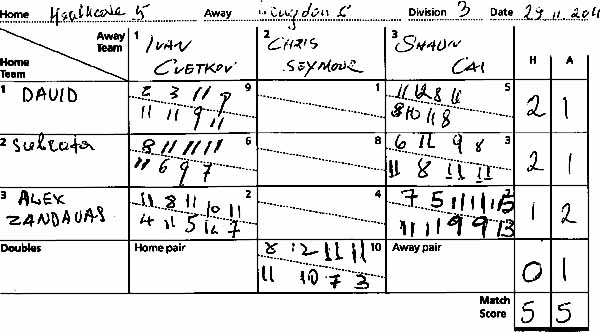 Home Heathcote 5 Away Division 3 Date 29 11 2011
Away Team 1 IVAN CVETKOV 2 CHRIS SEYMOUR 3 SHAUN CAI H A
Home Team
1 DAVID 9 1 5 2 1
2 3 11 9 11 12 8 11
11 11 9 11 8 10 11 8
2 8 3 2 1
8 11 11 11 6 6 11 9 8
11 6 9 7 11 8 11 11
3 ALEX ZANDAVAS 2 4 1 2
11 8 11 10 11 7 5 11 11 15
4 11 5 12 7 11 11 9 9 13
Doubles Home pair 10 Away pair 0 1
8 12 11 11
11 10 7 3
Match Score 5 5